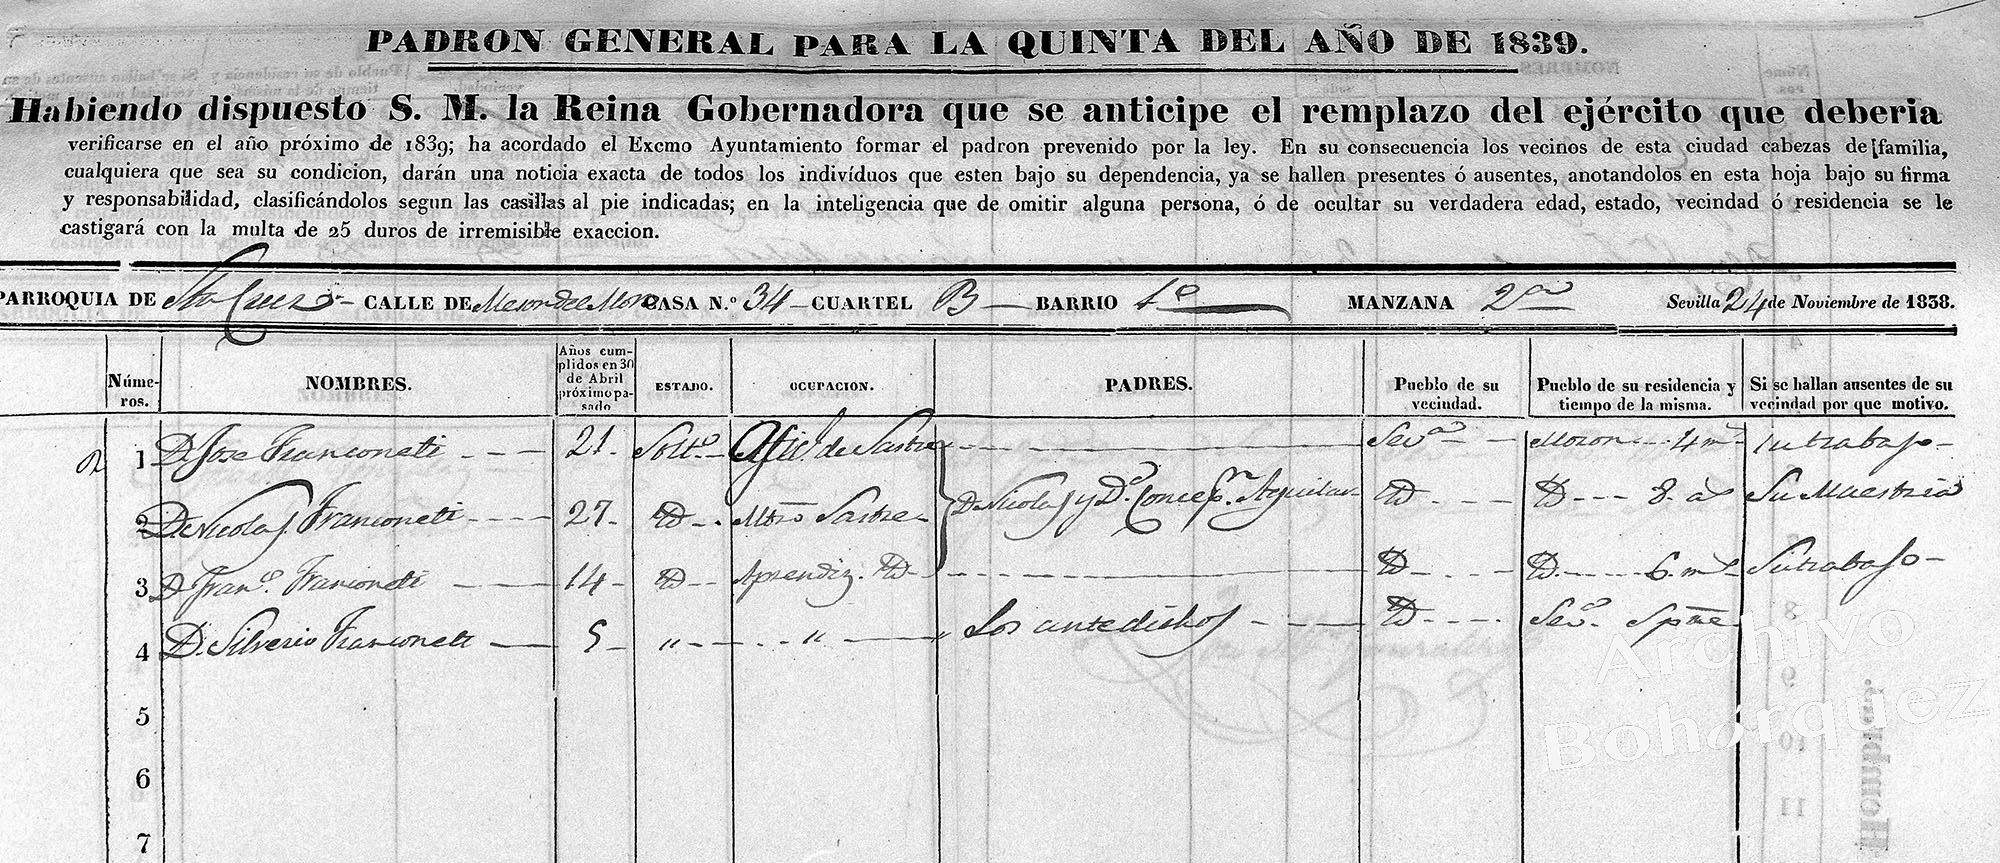 PADRON GENERAL PARA LA QUINTA DEL AÑO DE 1839.
Habiendo dispuesto S. M. la Reina Gobernadora que se anticipe el remplazo del ejército que deberia
verificarse en el año próximo de 1839; ha acordado el Excmo Ayuntamiento formar el padron prevenido por la ley. En su consecuencia los vecinos de esta ciudad cabezas de familia,
cualquiera que sea su condicion, darán una noticia exacta de todos los indivíduos que esten bajo su dependencia, ya se hallen presentes ó ausentes, anotandolos en esta hoja bajo su firma
y responsabilidad, clasificándolos segun las casillas al pie indicadas; en la inteligencia que de omitir alguna persona, ó de ocultar su verdadera edad, estado, vecindad ó residencia se le
castigará con la multa de 25 duros de irremisible exaccion.
PARROQUIA DE Sta Cruz CALLE DE Meson del Moro CASA N.º 34 CUARTEL B BARRIO 1º MANZANA 2ª Sevilla 24 de Noviembre de 1838.
Núme-
ros.
NOMBRES.
Años cum-
plidos en 30
de Abril
próximo pa-
sado
ESTADO.
OCUPACION.
PADRES.
Pueblo de su
vecindad.
Pueblo de su residencia y
tiempo de la misma.
Si se hallan ausentes de su
vecindad por que motivo.
2 1 D. Jose Franconeti 21 Solt.º Ofic.l de Sastre Sev.ª Moron 4 m.s Su trabajo
2 D. Nicolas Franconeti 27 Id Mtro Sastre D. Nicolas y D.ª Concep.n Aguilar Id Id 8 a.s Su Maestria
3 D. Fran.co Franconeti 14 Id Aprendiz Id Id Id 6 m.s Su trabajo
4 D. Silverio Franconeti 5 " " " Los antedichos Id Sev.ª Spre
5
6
7
Archivo
Bohórquez